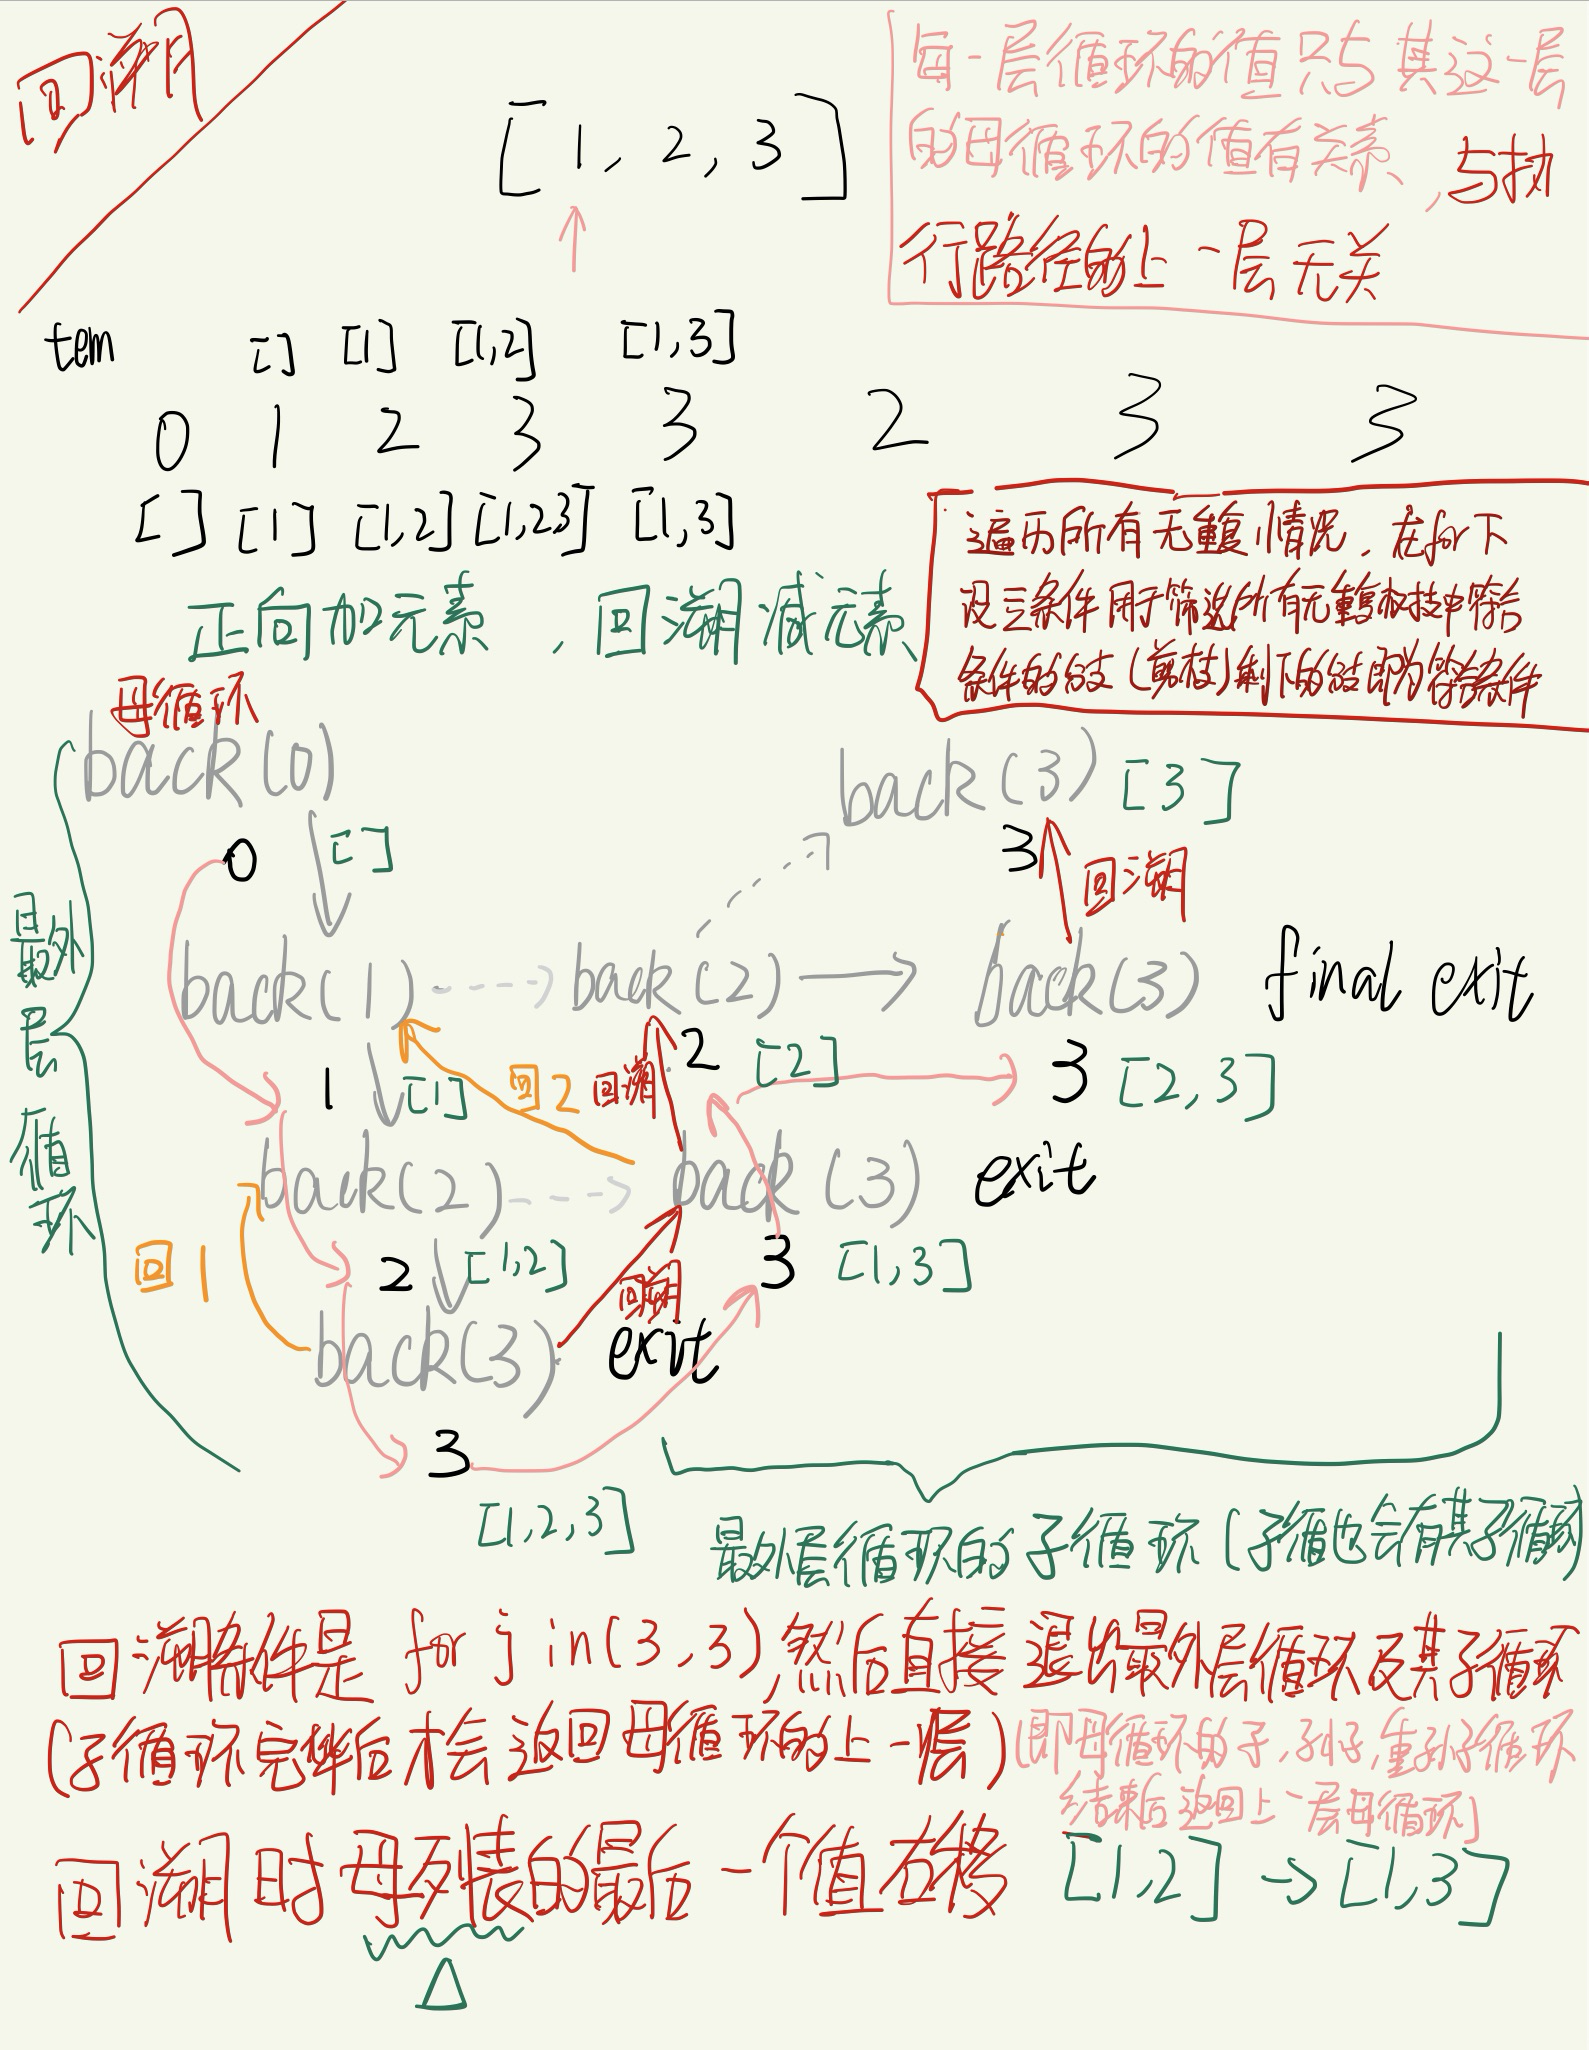 回溯
每一层循环的值只与其这一层
的母循环的值有关系，与执
行路径的上一层无关
[1, 2, 3]
tem [] [1] [1,2] [1,3]
0 1 2 3 3 2 3 3
[] [1] [1,2] [1,2,3] [1,3]
遍历所有无重复情况，在for下
设立条件用于筛选所有无重复树枝中符合
条件的分支(剪枝)剩下的就即为符合条件
正向加元素，回溯减元素
母循环
back(0)
back(3) [3]
0 []
3
回溯
最外层循环
back(1) back(2) back(3) final exit
1 [1]
回2
回溯
2 [2]
3 [2,3]
back(2) back(3) exit
回1
2 [1,2]
回溯
3 [1,3]
back(3) exit
3
[1,2,3]
最外层循环的子循环(子循也会有其子循环)
回溯条件是 for j in(3,3),然后直接退出最外层循环及其子循环
(子循环完毕后才会返回母循环的上一层)(即母循环的子,孙子,重孙子循环
结束后返回上一层母循环)
回溯时母列表的最后一个值右移 [1,2] → [1,3]
Δ